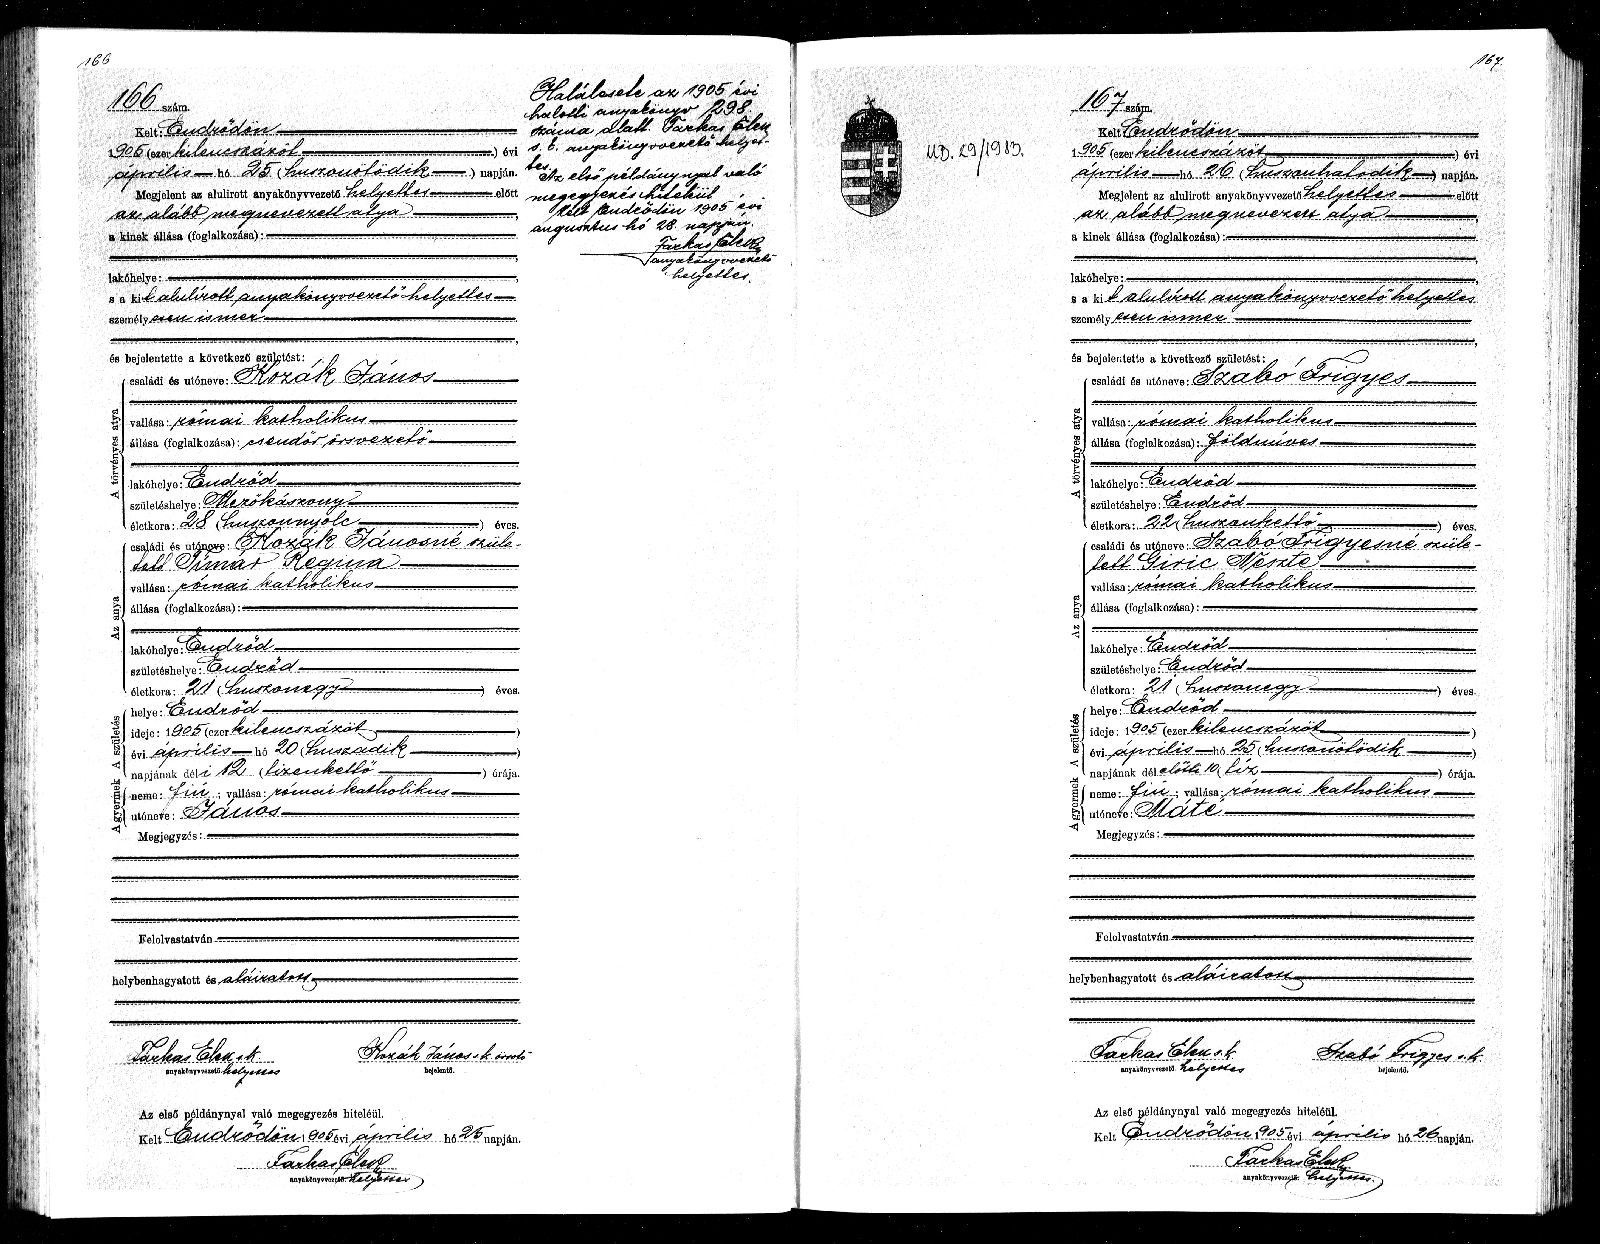 166
166 szám.
Kelt: Endrődön
1905 (ezer kilencszázöt) évi
április hó 25 (huszonötödik) napján.
Megjelent az alulirott anyakönyvvezető helyettes előtt
az alább megnevezett atya,
a kinek állása (foglalkozása):
,
lakóhelye:,
s a kit alulírott anyakönyvvezető helyettes
személyesen ismer
,
és bejelentette a következő születést:
A törvényes atya
családi és utóneve: Kozák János
vallása: római katholikus
állása (foglalkozása): csendőr őrsvezető
lakóhelye: Endrőd
születéshelye: Mezőkászony
életkora: 28 (huszonnyolc) éves.
Az anya
családi és utóneve: Kozák Jánosné szüle-
tett Tímár Regina
vallása: római katholikus
állása (foglalkozása):
lakóhelye: Endrőd
születéshelye: Endrőd
életkora: 21 (huszonegy) éves.
A születés
helye: Endrőd
ideje: 1905 (ezer kilencszázöt)
évi április hó 20 (huszadik)
napjának déli 12 (tizenkettő) órája.
A gyermek
neme: fiú; vallása: római katholikus
utóneve: János
Megjegyzés:
Felolvastatván
helybenhagyatott és aláiratott
Farkas Elek s.k. Kozák János s.k. őrsvető
anyakönyvvezető helyettes bejelentő.
Az első példánynyal való megegyezés hiteléül.
Kelt Endrődön 1905 évi április hó 25 napján.
Farkas Elek
anyakönyvvezető helyettes
Halálesete az 1905 évi
halotti anyakönyv 298.
száma alatt. Farkas Elek
s. k. anyakönyvvezető helyet-
tes.
Az első példánynyal való
megegyezés hiteléül
Kelt Endrődön 1905 évi
augusztus hó 28. napján
Farkas Elek
anyakönyvvezető
helyettes.
167.
UD. 29/1983.
167 szám.
Kelt: Endrődön
1905 (ezer kilencszázöt) évi
április hó 26 (huszonhatodik) napján.
Megjelent az alulirott anyakönyvvezető helyettes előtt
az alább megnevezett atya,
a kinek állása (foglalkozása):
,
lakóhelye:,
s a kit alulírott anyakönyvvezető helyettes
személyesen ismer
,
és bejelentette a következő születést:
A törvényes atya
családi és utóneve: Szabó Frigyes
vallása: római katholikus
állása (foglalkozása): földmíves
lakóhelye: Endrőd
születéshelye: Endrőd
életkora: 22 (huszonkettő) éves.
Az anya
családi és utóneve: Szabó Frigyesné szüle-
tett Giric Neszte
vallása: római katholikus
állása (foglalkozása):
lakóhelye: Endrőd
születéshelye: Endrőd
életkora: 21 (huszonegy) éves.
A születés
helye: Endrőd
ideje: 1905 (ezer kilencszázöt)
évi április hó 25 (huszonötödik)
napjának dél előtti 10 (tíz) órája.
A gyermek
neme: fiú; vallása: római katholikus
utóneve: Máté
Megjegyzés:
Felolvastatván
helybenhagyatott és aláiratott
Farkas Elek s.k. Szabó Frigyes s.k.
anyakönyvvezető helyettes bejelentő.
Az első példánynyal való megegyezés hiteléül.
Kelt Endrődön 1905 évi április hó 26 napján.
Farkas Elek
anyakönyvvezető helyettes.